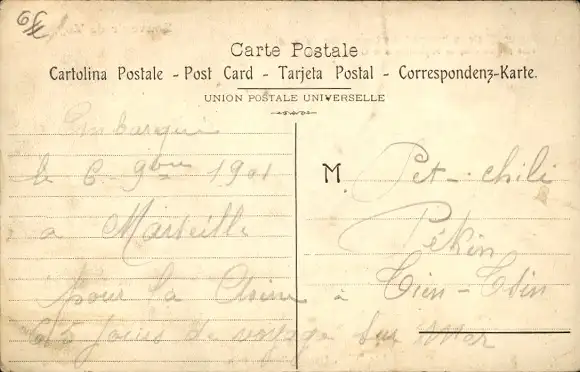 Carte Postale
Cartolina Postale - Post Card - Tarjeta Postal - Correspondenz-Karte.
UNION POSTALE UNIVERSELLE
Embarqué
le 6 9bre 1901
a Marseille
pour la Chine
M. Pet-chili
Pékin
à Tien-Tsin
65 jours de voyage sur mer